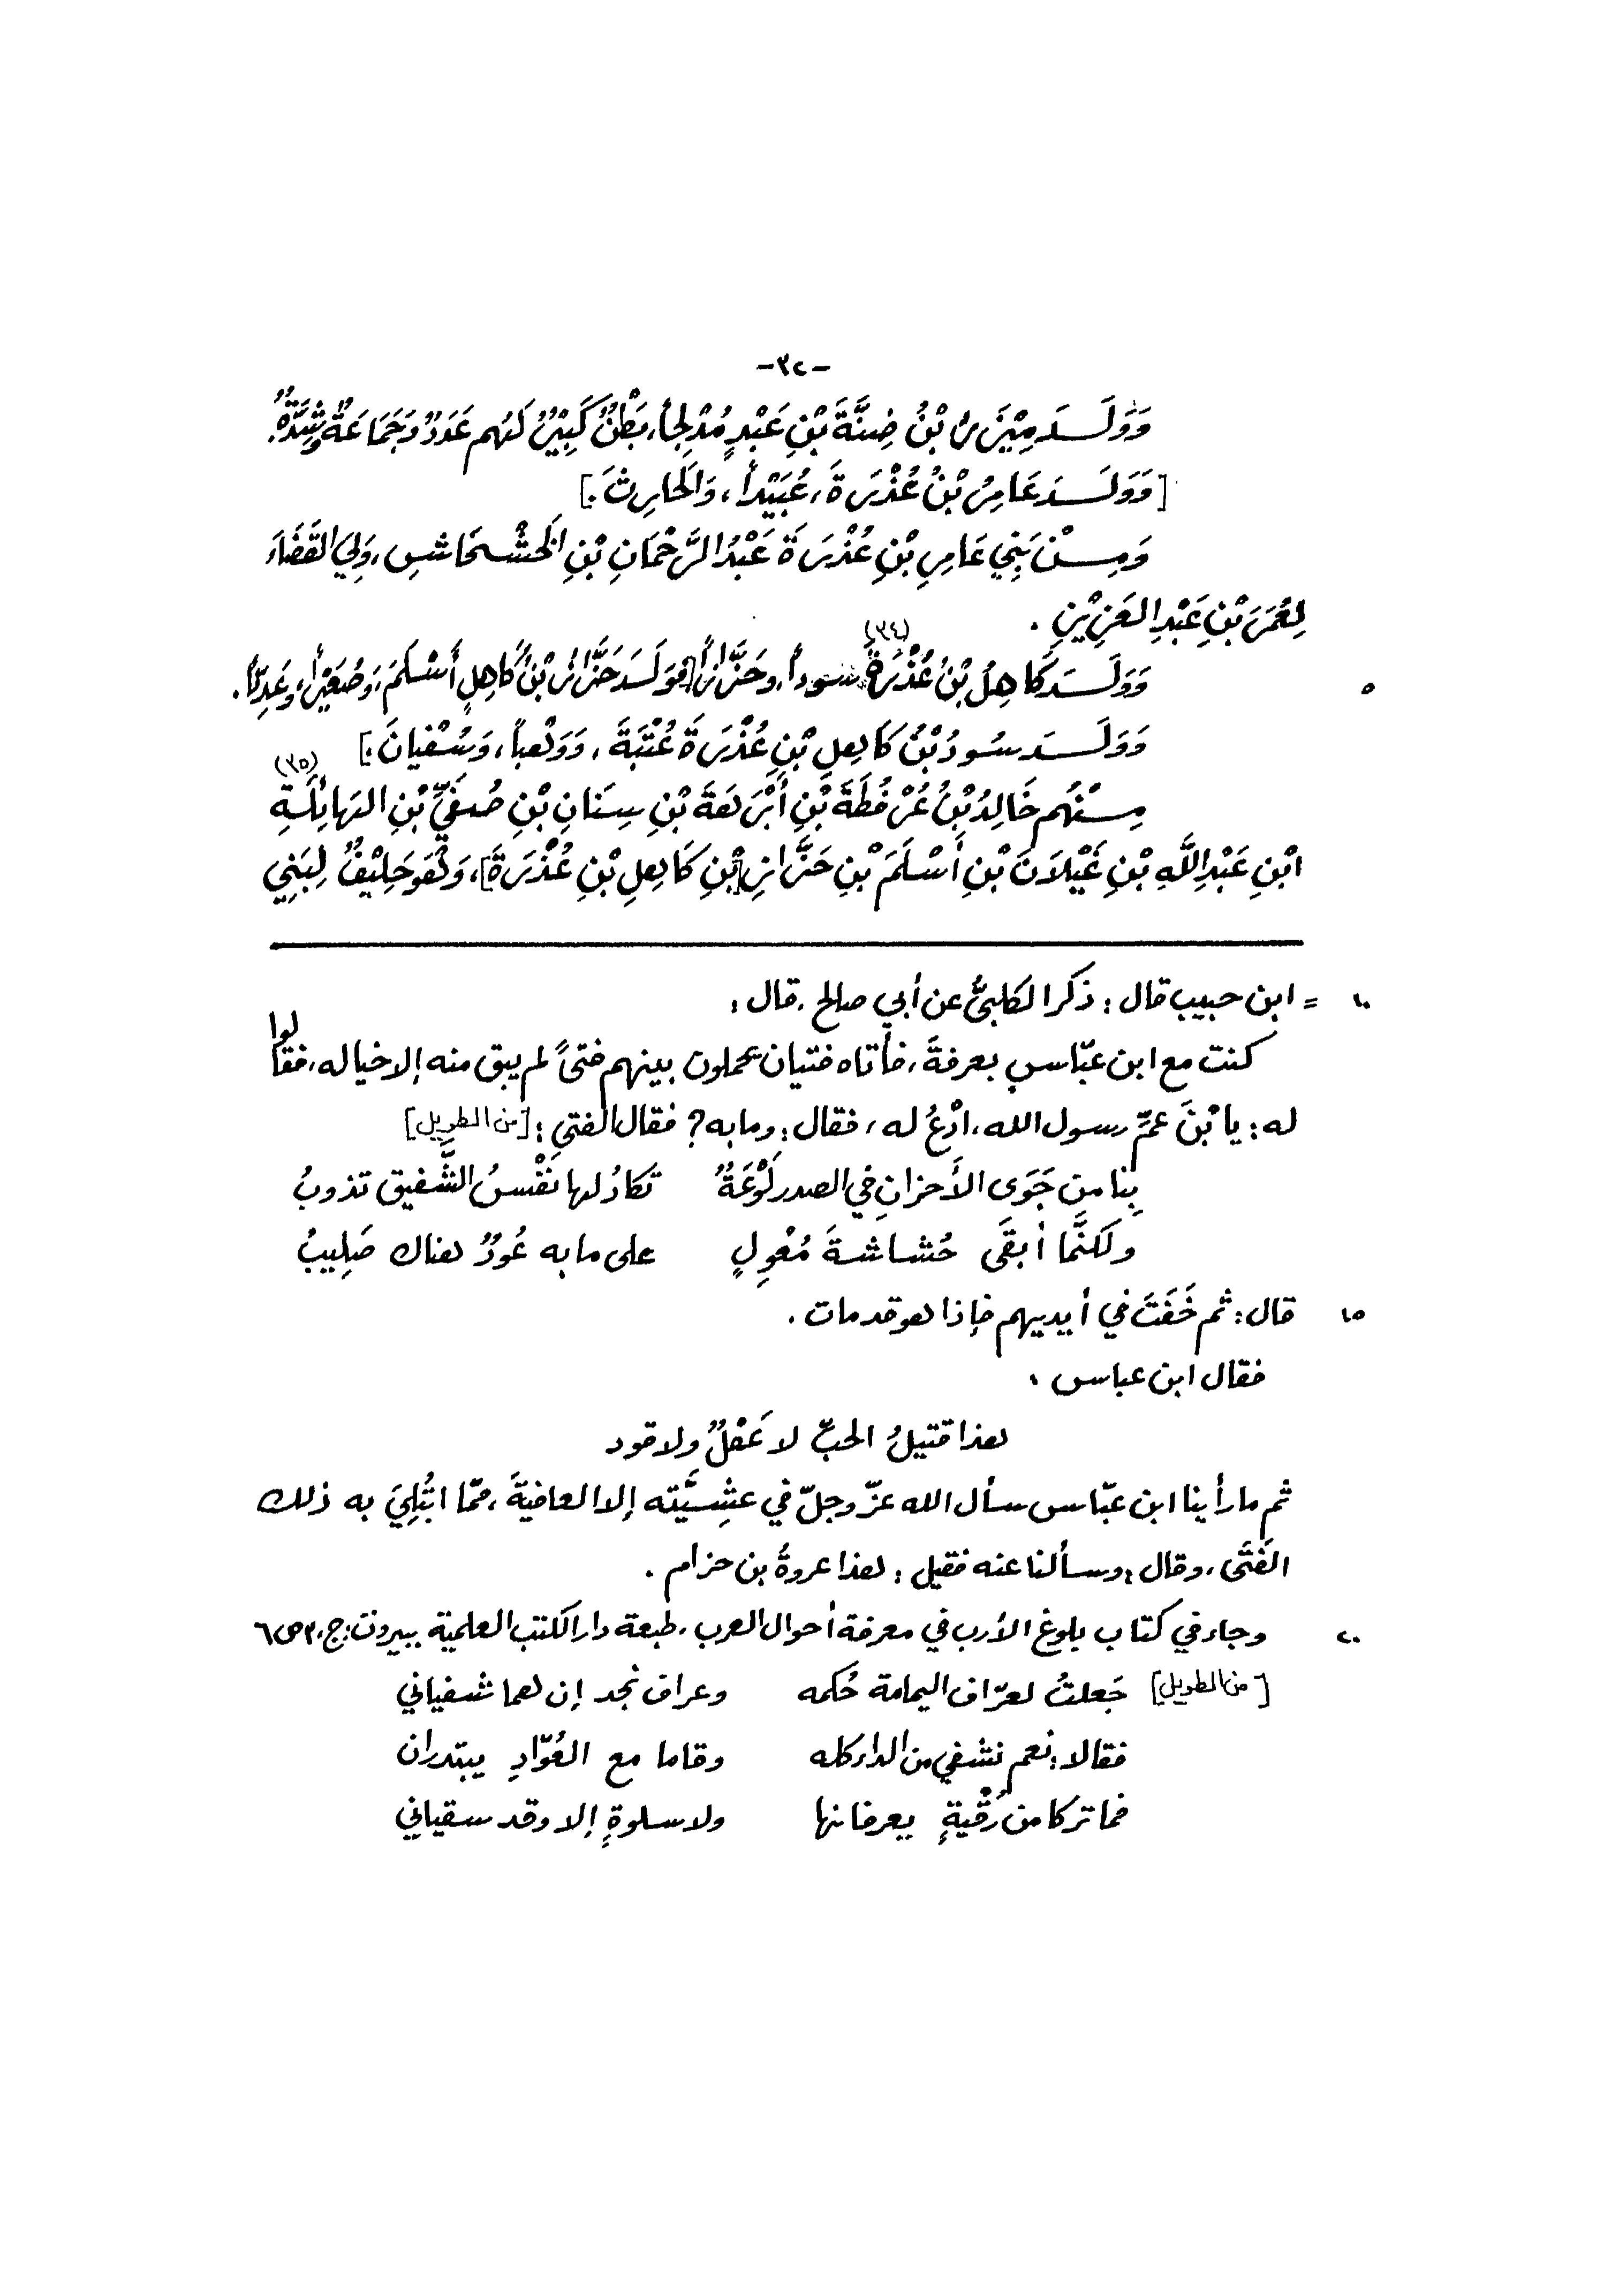 -٣٢-
وَوَلَـــدَ مِيْزَرُ بْنُ ضِنَّةَ بْنِ عَبْدٍ مُدْلِجاً، بَطْنٌ كَبِيْرٌ لَهُم عَدَدٌ وَجَمَاعَةٌ وَشِدَّةٌ.
[وَوَلَـــدَ عَامِرُ بْنُ عُذْرَةَ، عُبَيْداً، وَالحَارِثَ.]
وَمِـــنْ بَنِي عَامِرِ بْنِ عُذْرَةَ عَبْدُ الرَّحْمَانِ بْنِ الخَشْخَاشِ، وَلِيَ القَضَاءَ
لِعُمَرَ بْنِ عَبْدِ العَزِيْزِ.
٥ وَوَلَـــدَ كَاهِلُ بْنُ عُذْرَةَ (٣٤) سوداً، وحَزَّازاً [فَوَلَدَ حَزَّازُ بْنُ كَاهِلٍ أَسْلَمَ، وَصُعَيْراً، وعَدِيّاً.
وَوَلَـــدَ سُودُ بْنُ كَاهِلِ بْنِ عُذْرَةَ عُتْبَةَ، وَوَهْباً، وَسُفْيانَ.]
مِـــنْهُم خَالِدُ بْنُ عُرْفُطَةَ بْنِ أَبْرَهَةَ بْنِ سِنَانِ بْنِ صُيفَيِّ بْنِ الهَائِلَةِ (٣٥)
ابْنِ عَبْدِ اللَّهِ بْنِ غَيْلَانَ بْنِ أَسْلَمَ بْنِ حَزَّازِ [بْنِ كَاهِلِ بْنِ عُذْرَةَ]، وَهُوَ حَلِيْفٌ لِبَنِي
١٠ = ابن حبيب قال: ذكر الكلبيُّ عن أبي صالح، قال:
كنت مع ابن عبّاس بعرفةَ، فأتاه فتيان يحملون بينهم فتىً لم يبق منه إلا خياله، فقالوا
له: يا بْنَ عمّ رسول الله، ادْعُ له، فقال: وما به؟ فقال الفتى: [من الطويل]
بِنا من جَوَى الأَحزانِ في الصدر لَوْعَةٌ تكادُ لها نَفْسُ الشَّفيق تذوبُ
ولكنَّما أبقَى حُشاشةَ مُعْوِلٍ على ما به عُودٌ هناك صَلِيبُ
١٥ قال: ثم خَفَتَ في أيديهم فإذا هو قد مات.
فقال ابن عباس:
هذا قتيلُ الحبِّ لا عَقْلٌ ولا قود
ثم ما رأينا ابن عبّاس سأل الله عزّ وجلّ في عشِيَّته إلا العافيةَ، ممّا ابتُلِيَ به ذلك
الفَتَى، وقال: وسألنا عنه فقيل: هذا عروةُ بن حزام.
٢٠ وجاء في كتاب بلوغ الأرب في معرفة أحوال العرب، طبعة دار الكتب العلمية ببيروت: ج، ٣ ص٦
[من الطويل] جَعلتُ لعرّاف اليمامة حُكمه وعراف نجد إن هما شفياني
فقالا: نعم نشفي من الداء كله وقاما مع العُوّادِ يبتدران
فما تركا من رُقْيةٍ يعرفانها ولا سلوةٍ إلا وقد سقياني